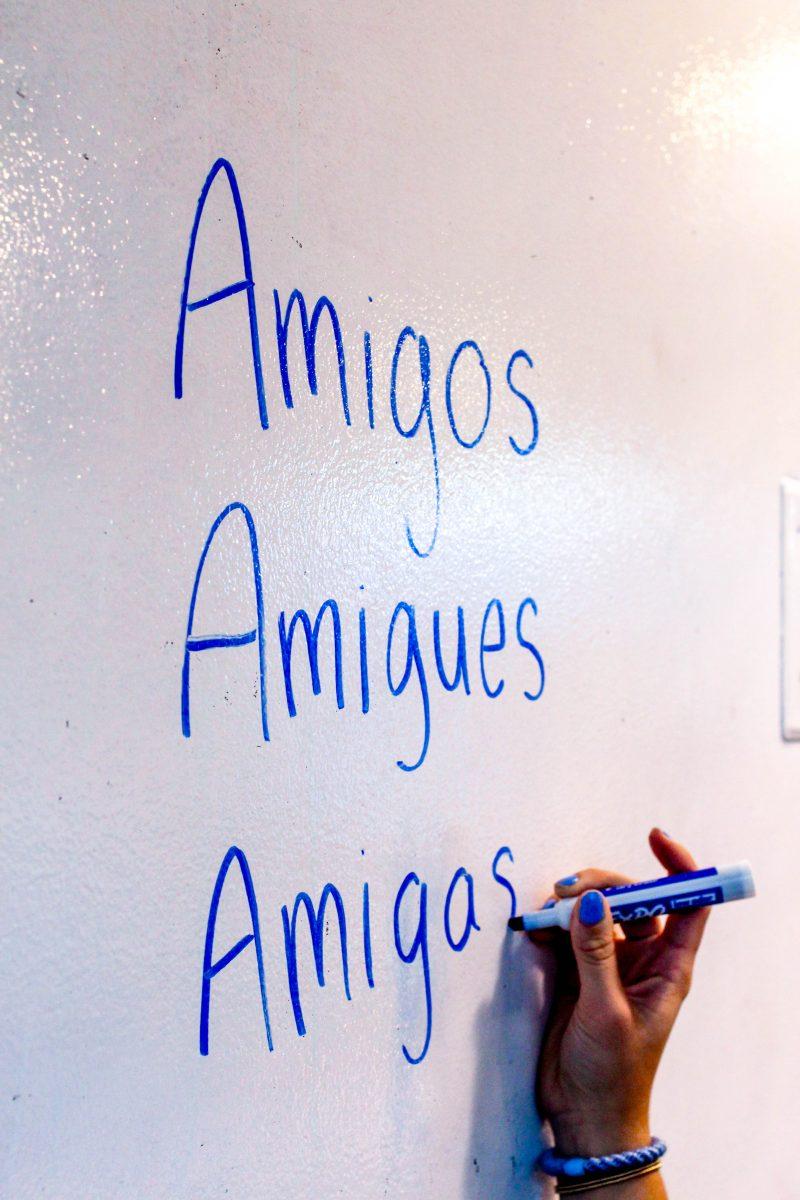 Amigos
Amigues
Amigas